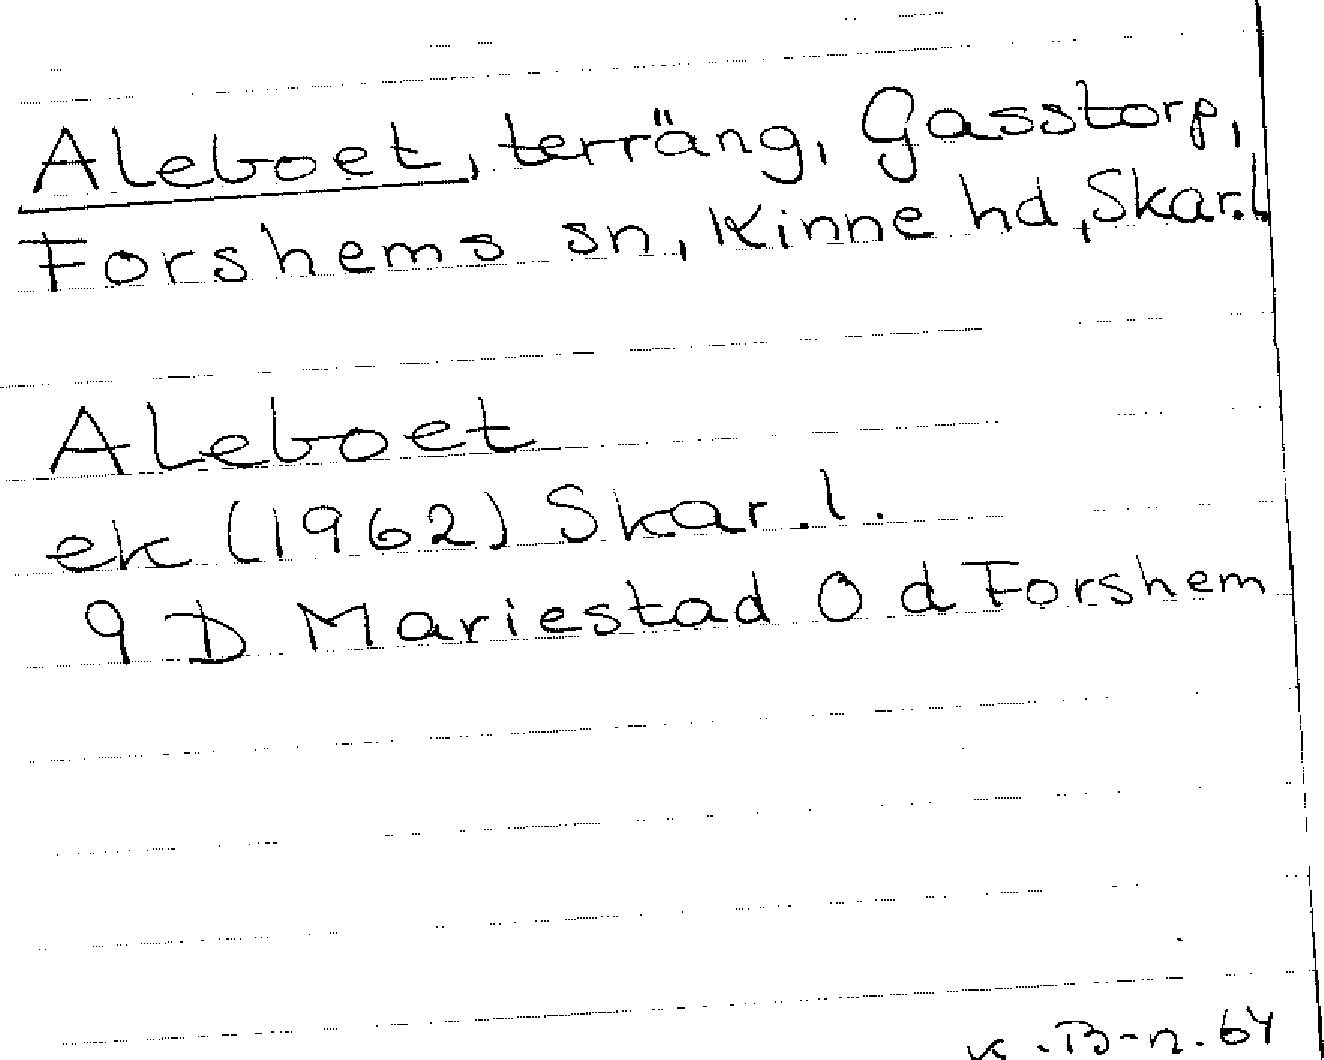 Aleboet, terräng, Gasstorp,
Forshems sn, Kinne hd, Skar.l.
Aleboet
ek (1962) Skar.l.
9 D Mariestad O d Forshem
K.B-n. 64